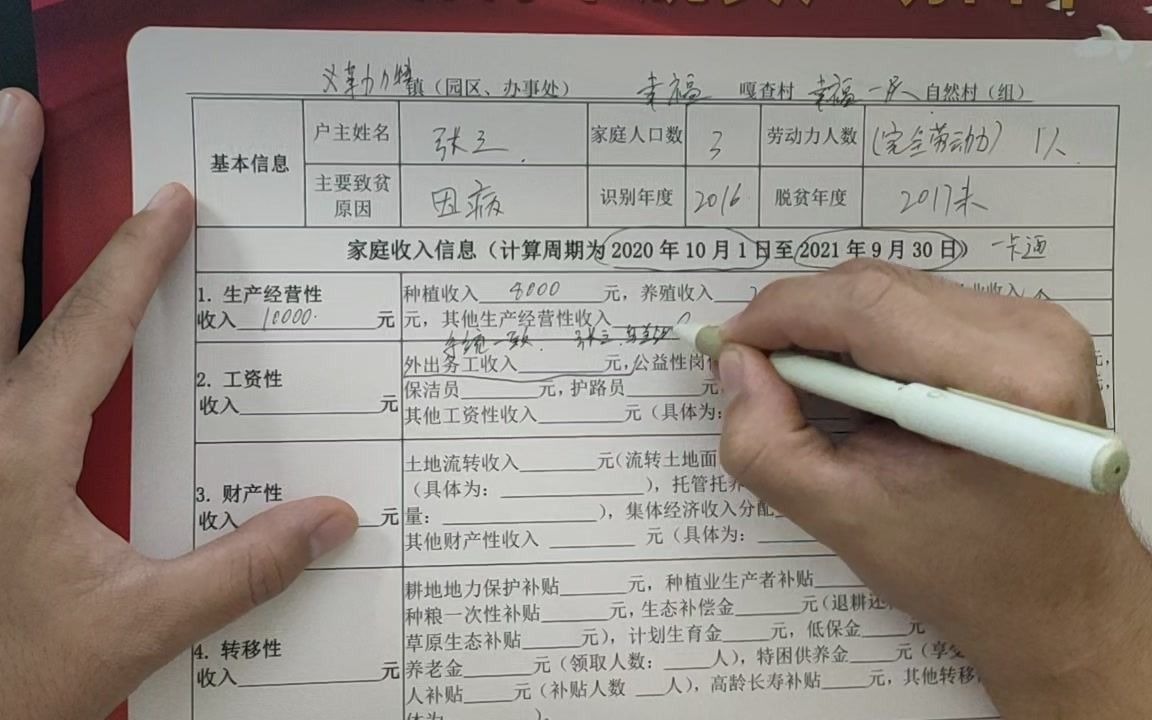 义勒力特镇（园区、办事处） 幸福 嘎查村 幸福一队 自然村（组）
基本信息 户主姓名 张三 家庭人口数 3 劳动力人数 (完全劳动力) 1人
主要致贫原因 因病 识别年度 2016 脱贫年度 2017末
家庭收入信息（计算周期为2020年10月1日至2021年9月30日） 一卡通
1. 生产经营性 种植收入 8000 元，养殖收入
收入 10000 元 元，其他生产经营性收入
系统一致. 张三
2. 工资性 外出务工收入______元，公益性岗
收入______元 保洁员______元，护路员______元，
其他工资性收入______元（具体为：
土地流转收入______元（流转土地面
3. 财产性 （具体为：______），托管托养
收入______元 量：______），集体经济收入分配
其他财产性收入______元（具体为：______
耕地地力保护补贴______元，种植业生产者补贴______
种粮一次性补贴______元，生态补偿金______元（退耕还
4. 转移性 草原生态补贴______元），计划生育金____元，低保金____元
收入______元 养老金_____元（领取人数：____人），特困供养金_____元（享受
人补贴____元（补贴人数___人），高龄长寿补贴_____元，其他转移
体为______）；